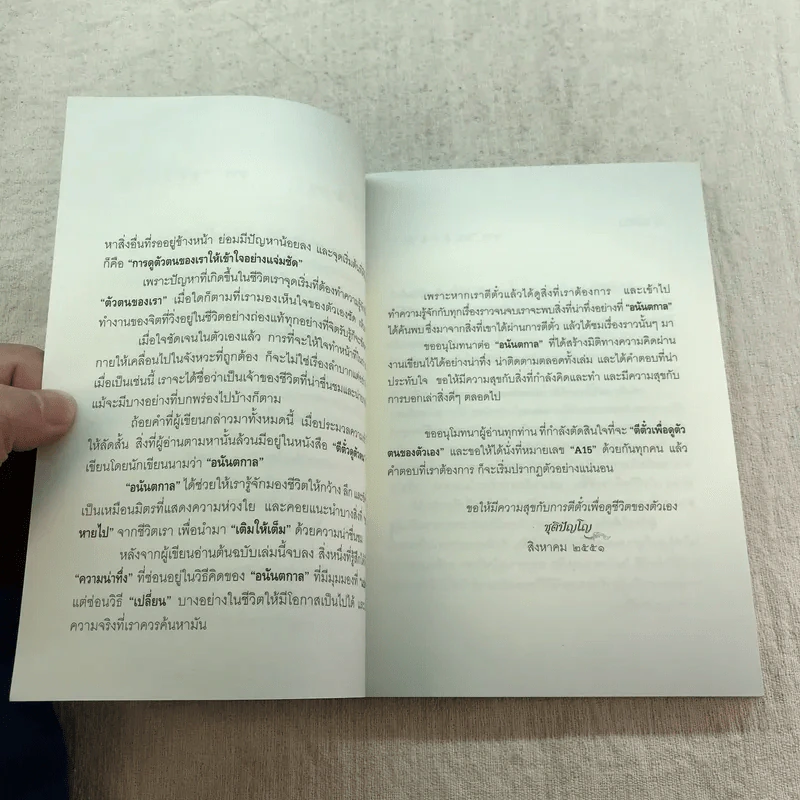 หาสิ่งอื่นที่รออยู่ข้างหน้า ย่อมมีปัญหาน้อยลง และจุดเริ่มต้น
ก็คือ “การดูตัวตนของเราให้เข้าใจอย่างแจ่มชัด”
เพราะปัญหาที่เกิดขึ้นในชีวิตเราจุดเริ่มที่ต้องทำความรู้จัก
“ตัวตนของเรา” เมื่อใดก็ตามที่เรามองเห็นใจของตัวเองชัด
ทำงานของจิตที่วิ่งอยู่ในชีวิตอย่างถ่องแท้ทุกอย่างที่จิตรับรู้ก็จะ
เมื่อใจชัดเจนในตัวเองแล้ว การที่จะให้ใจทำหน้าที่
กายให้เคลื่อนไปในจังหวะที่ถูกต้อง ก็จะไม่ใช่เรื่องลำบาก
เมื่อเป็นเช่นนี้ เราจะได้ชื่อว่าเป็นเจ้าของชีวิตที่น่าชื่นชม
แม้จะมีบางอย่างที่บกพร่องไปบ้างก็ตาม
ถ้อยคำที่ผู้เขียนกล่าวมาทั้งหมดนี้ เมื่อประมวลความ
ให้ลัดสั้น สิ่งที่ผู้อ่านตามหานั้นล้วนมีอยู่ในหนังสือ “ตีตั๋วดูตัวตน
เขียนโดยนักเขียนนามว่า “อนันตกาล”
“อนันตกาล” ได้ช่วยให้เรารู้จักมองชีวิตให้กว้าง ลึก และ
เป็นเหมือนมิตรที่แสดงความห่วงใย และคอยแนะนำบางสิ่งที่
หายไป” จากชีวิตเรา เพื่อนำมา “เติมให้เต็ม” ด้วยความน่าชื่นชม
หลังจากผู้เขียนอ่านต้นฉบับเล่มนี้จบลง สิ่งหนึ่งที่รู้สึกได้
“ความน่าทึ่ง” ที่ซ่อนอยู่ในวิธีคิดของ “อนันตกาล” ที่มีมุมมองที่
แต่ซ่อนวิธี “เปลี่ยน” บางอย่างในชีวิตให้มีโอกาสเป็นไปได้
ความจริงที่เราควรค้นหามัน
เพราะหากเราตีตั๋วแล้วได้ดูสิ่งที่เราต้องการ และเข้าไป
ทำความรู้จักกับทุกเรื่องราวจนจบเราจะพบสิ่งที่น่าทึ่งอย่างที่ “อนันตกาล”
ได้ค้นพบ ซึ่งมาจากสิ่งที่เขาได้ผ่านการตีตั๋ว แล้วได้ชมเรื่องราวนั้นๆ มา
ขออนุโมทนาต่อ “อนันตกาล” ที่ได้สร้างมิติทางความคิดผ่าน
งานเขียนไว้ได้อย่างน่าทึ่ง น่าติดตามตลอดทั้งเล่ม และได้คำตอบที่น่า
ประทับใจ ขอให้มีความสุขกับสิ่งที่กำลังคิดและทำ และมีความสุขกับ
การบอกเล่าสิ่งดีๆ ตลอดไป
ขออนุโมทนาผู้อ่านทุกท่าน ที่กำลังตัดสินใจที่จะ “ตีตั๋วเพื่อดูตัว
ตนของตัวเอง” และขอให้ได้นั่งที่หมายเลข “A15” ด้วยกันทุกคน แล้ว
คำตอบที่เราต้องการ ก็จะเริ่มปรากฏตัวอย่างแน่นอน
ขอให้มีความสุขกับการตีตั๋วเพื่อดูชีวิตของตัวเอง
ชุติปัญโญ
สิงหาคม ๒๕๕๑